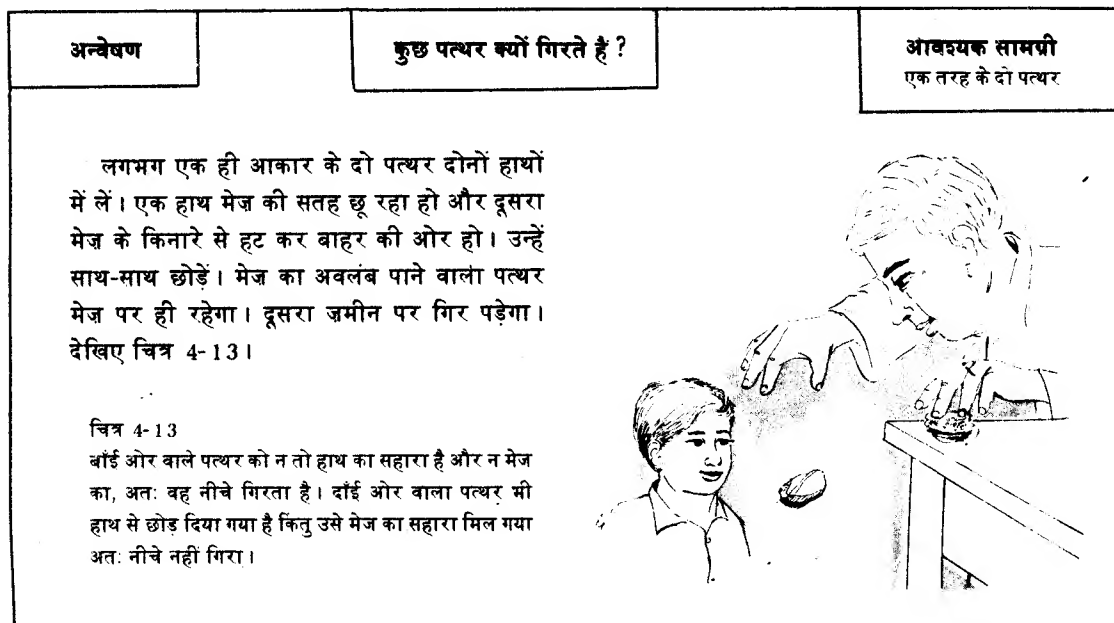 अन्वेषण
कुछ पत्थर क्यों गिरते हैं ?
आवश्यक सामग्री
एक तरह के दो पत्थर
लगभग एक ही आकार के दो पत्थर दोनों हाथों
में लें । एक हाथ मेज़ की सतह छू रहा हो और दूसरा
मेज़ के किनारे से हट कर बाहर की ओर हो । उन्हें
साथ-साथ छोड़ें । मेज़ का अवलंब पाने वाला पत्थर
मेज़ पर ही रहेगा । दूसरा ज़मीन पर गिर पड़ेगा ।
देखिए चित्र 4-13 ।
चित्र 4-13
बाँई ओर वाले पत्थर को न तो हाथ का सहारा है और न मेज
का, अतः वह नीचे गिरता है । दाँई ओर वाला पत्थर भी
हाथ से छोड़ दिया गया है किंतु उसे मेज का सहारा मिल गया
अतः नीचे नहीं गिरा ।